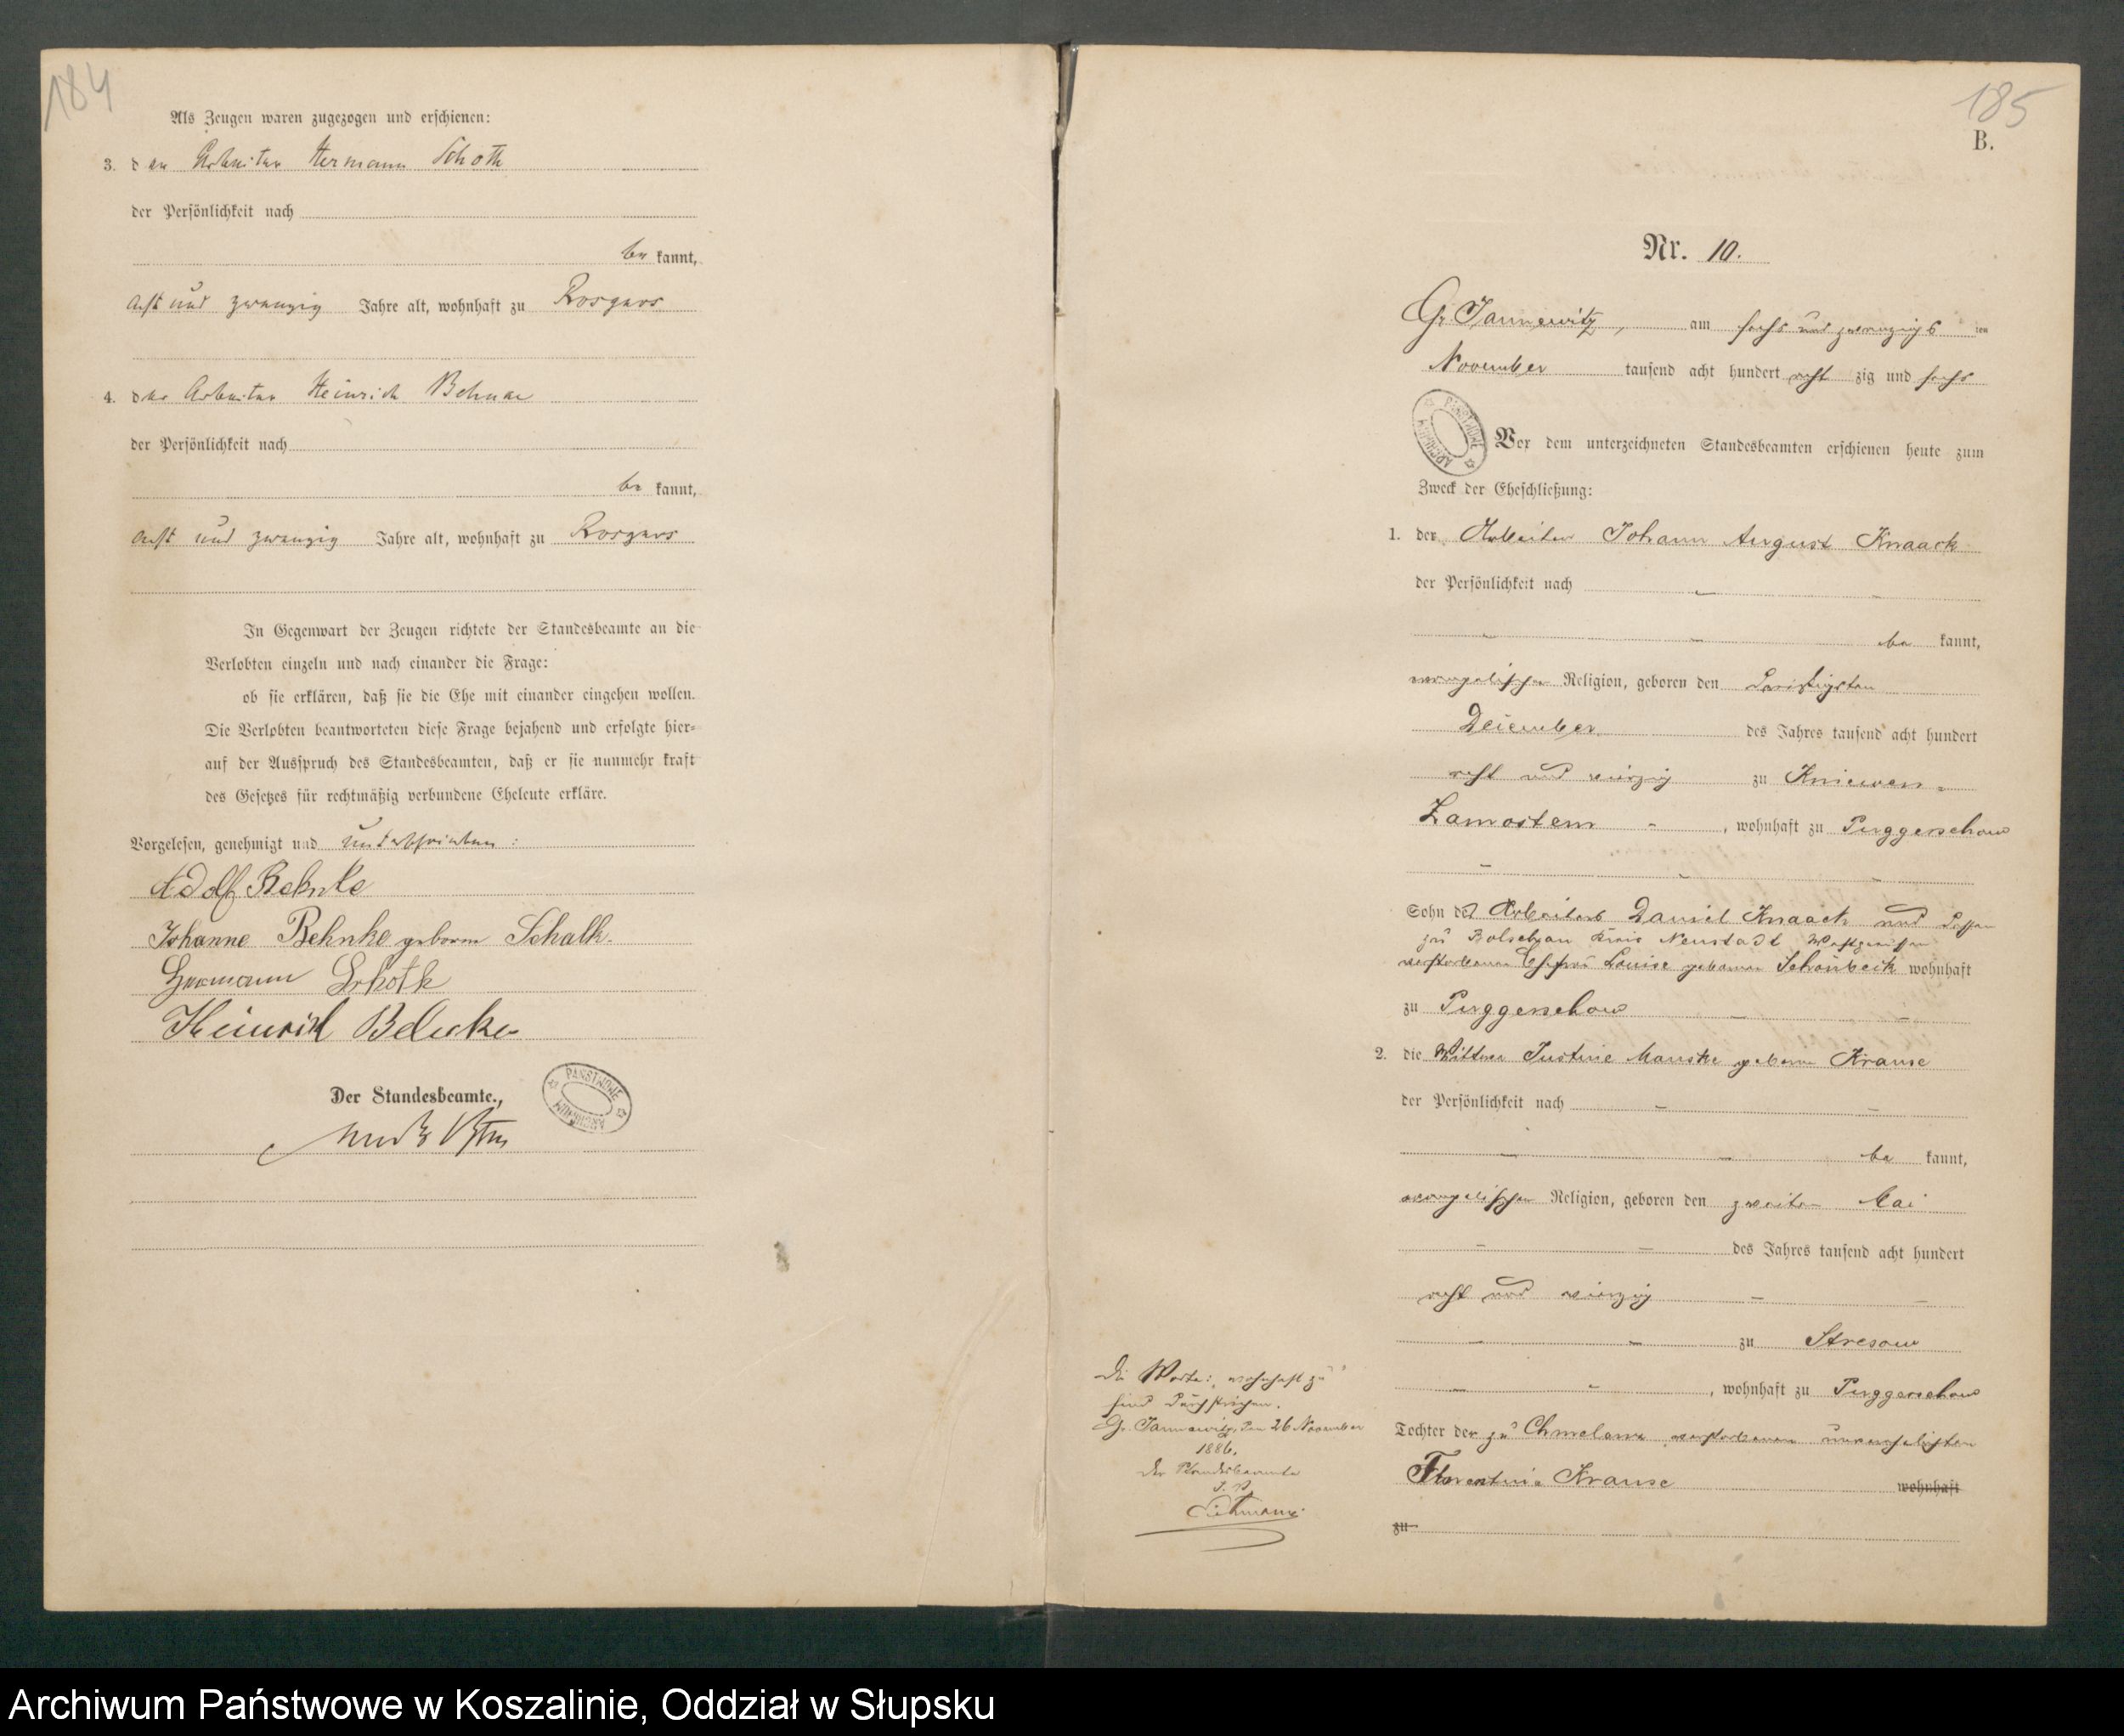 184
Als Zeugen waren zugezogen und erschienen:
3. der Arbeiter Hermann Schoth
der Persönlichkeit nach
be kannt,
acht und zwanzig Jahre alt, wohnhaft zu Rosgars
4. der Arbeiter Heinrich Behnke
der Persönlichkeit nach
be kannt,
acht und zwanzig Jahre alt, wohnhaft zu Rosgars
In Gegenwart der Zeugen richtete der Standesbeamte an die
Verlobten einzeln und nach einander die Frage:
ob sie erklären, daß sie die Ehe mit einander eingehen wollen.
Die Verlobten beantworteten diese Frage bejahend und erfolgte hier-
auf der Ausspruch des Standesbeamten, daß er sie nunmehr kraft
des Gesetzes für rechtmäßig verbundene Eheleute erkläre.
Vorgelesen, genehmigt und unterschrieben:
Adolf Behnke
Johanne Behnke geborene Schalk.
Hermann Schoth
Heinrich Behnke
Der Standesbeamte.,
PAŃSTWOWE
ARCHIWUM
185
B.
Nr. 10.
Gr. Jannewitz, am sechs und zwanzigsten
November tausend acht hundert acht zig und sechs
PAŃSTWOWE
ARCHIWUM
Vor dem unterzeichneten Standesbeamten erschienen heute zum
Zweck der Eheschließung:
1. der Arbeiter Johann August Knaack
der Persönlichkeit nach
be kannt,
evangelischer Religion, geboren den dreißigsten
Dezember des Jahres tausend acht hundert
acht und vierzig zu Kniewen-
Zamostem, wohnhaft zu Puggerschow
Sohn des Arbeiters Daniel Knaack und dessen
zu Bolschau Kreis Neustadt Westpreußen
verstorbenen Ehefrau Louise geborene Schönbeck wohnhaft
zu Puggerschow
2. die Wittwe Justine Manske geborne Krause
der Persönlichkeit nach
be kannt,
evangelischer Religion, geboren den zweiten Mai
des Jahres tausend acht hundert
acht und vierzig
zu Stresow
, wohnhaft zu Puggerschow
Tochter der zu Chmelenz verstorbenen unverehelichten
Florentine Krause wohnhaft
zu
Die Worte: "wohnhaft zu"
sind durchstrichen.
Gr. Jannewitz, den 26 November
1886.
Der Standesbeamte
I. V.
Archiwum Państwowe w Koszalinie, Oddział w Słupsku